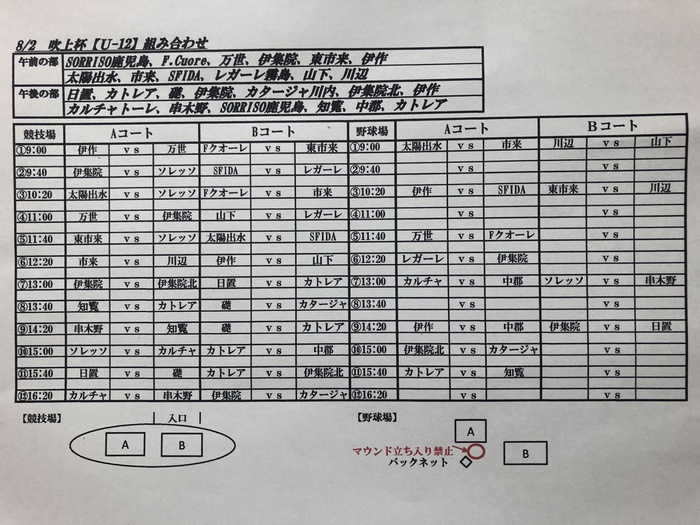 8/2 吹上杯【U-12】組み合わせ
午前の部 SORRISO鹿児島、F.Cuore、万世、伊集院、東市来、伊作
太陽出水、市来、SFIDA、レガーレ霧島、山下、川辺
午後の部 日置、カトレア、礎、伊集院、カタージャ川内、伊集院北、伊作
カルチャトーレ、串木野、SORRISO鹿児島、知覧、中郡、カトレア
競技場 Aコート Bコート 野球場 Aコート Bコート
①9:00 伊作 vs 万世 Fクオーレ vs 東市来 ①9:00 太陽出水 vs 市来 川辺 vs 山下
②9:40 伊集院 vs ソレッソ SFIDA vs レガーレ ②9:40 vs vs
③10:20 太陽出水 vs ソレッソ Fクオーレ vs 市来 ③10:20 伊作 vs SFIDA 東市来 vs 川辺
④11:00 万世 vs 伊集院 山下 vs レガーレ ④11:00 vs vs
⑤11:40 東市来 vs ソレッソ 太陽出水 vs SFIDA ⑤11:40 万世 vs Fクオーレ vs
⑥12:20 市来 vs 川辺 伊作 vs 山下 ⑥12:20 レガーレ vs 伊集院 vs
⑦13:00 伊集院 vs 伊集院北 日置 vs カトレア ⑦13:00 カルチャ vs 中郡 ソレッソ vs 串木野
⑧13:40 知覧 vs カトレア 礎 vs カタージャ ⑧13:40 vs vs
⑨14:20 串木野 vs 知覧 礎 vs カトレア ⑨14:20 伊作 vs 中郡 伊集院 vs 日置
⑩15:00 ソレッソ vs カルチャ カトレア vs 中郡 ⑩15:00 伊集院北 vs カタージャ vs
⑪15:40 日置 vs 礎 カトレア vs 伊集院北 ⑪15:40 カトレア vs 知覧 vs
⑫16:20 カルチャ vs 串木野 伊集院 vs カタージャ ⑫16:20 vs vs
【競技場】 入口 【野球場】
A B
A
マウンド立ち入り禁止
B
バックネット